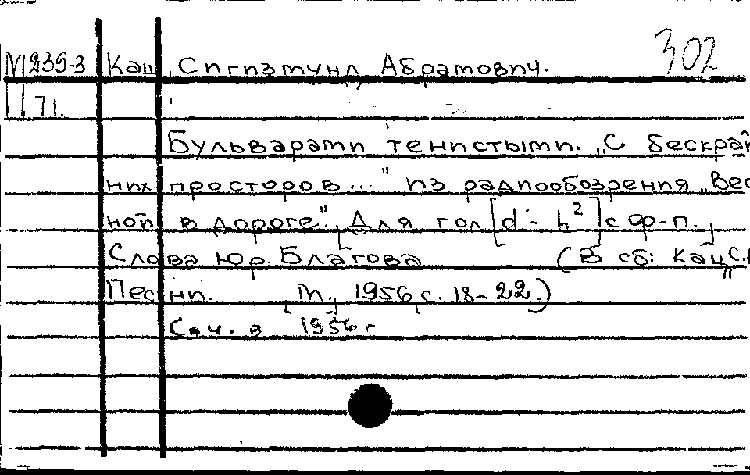 302
М 239-3 Кац, Сигизмунд Абрамович.
71.
Бульварами тенистыми. „С бескрай
них просторов..." из радиообозрения „Вес
ной в дороге". Для гол. [d'- h²] с ф-п.
Слова Юр. Благова (В сб: Кац С.
Песни. М, 1956 с. 18-22.)
Соч. в 1956 г